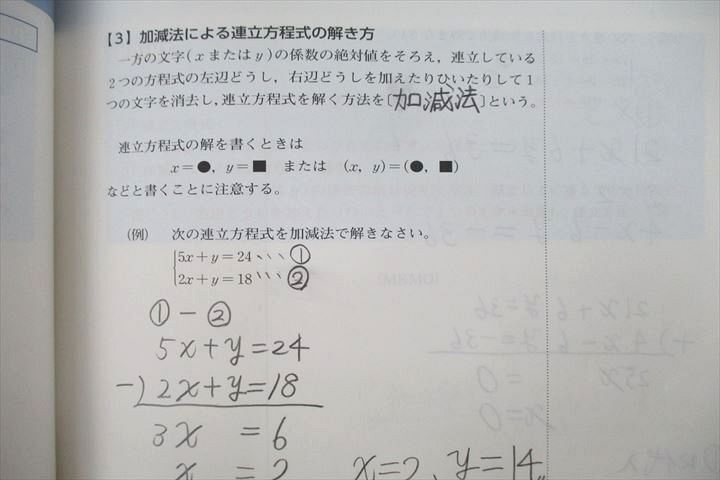 【3】加減法による連立方程式の解き方
一方の文字(xまたはy)の係数の絶対値をそろえ,連立している
2つの方程式の左辺どうし,右辺どうしを加えたりひいたりして1
つの文字を消去し,連立方程式を解く方法を〔加減法〕という。
連立方程式の解を書くときは
x=●, y=■ または (x, y)=(●, ■)
などと書くことに注意する。
(例) 次の連立方程式を加減法で解きなさい。
5x+y=24 ①
2x+y=18 ②
①-②
5x+y=24
-)2x+y=18
3x =6
x =2 x=2, y=14